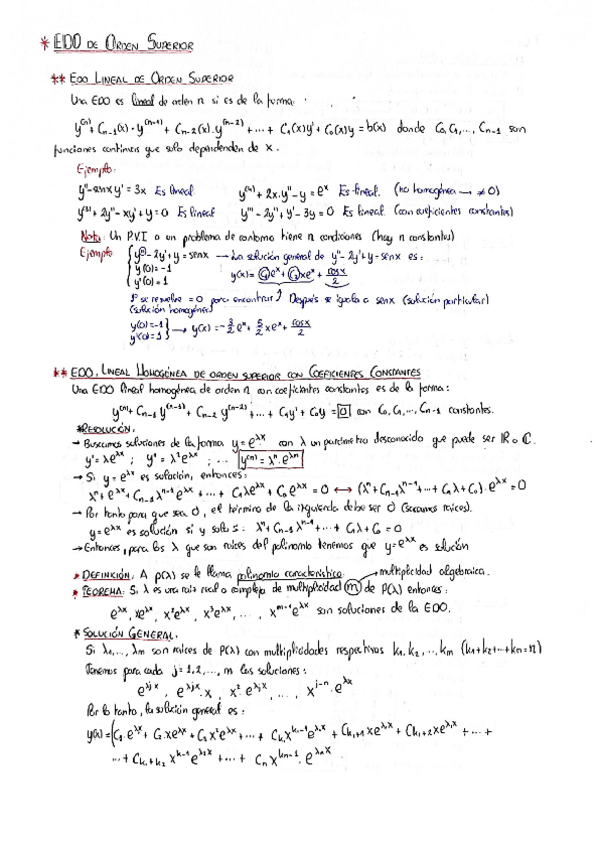 * EDO DE ORDEN SUPERIOR
** EDO LINEAL DE ORDEN SUPERIOR
Una EDO es lineal de orden n si es de la forma:
y⁽ⁿ⁾ + Cₙ₋₁(x)·y⁽ⁿ⁻¹⁾ + Cₙ₋₂(x)·y⁽ⁿ⁻²⁾ + ... + C₁(x)y' + C₀(x)y = b(x) donde C₀, C₁, ..., Cₙ₋₁ son
funciones continuas que solo dependenden de x.
Ejemplo:
y'' - senx y' = 3x Es lineal
y⁽⁴⁾ + 2x·y'' - y = eˣ Es lineal. (no homogénea → ≠ 0)
y''' + 2y'' - xy' + y = 0 Es lineal
y''' - 2y'' + y' - 3y = 0 Es lineal (con coeficientes constantes)
Nota: Un P.V.I o un problema de contorno tiene n condiciones (hay n constantes)
Ejemplo { y'' - 2y' + y = senx → La solución general de y'' - 2y' + y = senx es:
y(0) = -1
y'(0) = 1
y(x) = C₁eˣ + C₂xeˣ + cosx/2
1º se resuelve = 0 para encontrar ↑ Después se iguala a senx (solución particular)
(solución homogénea)
y(0) = -1
y'(0) = 1 } → y(x) = -3/2 eˣ + 5/2 xeˣ + cosx/2
** EDO. LINEAL HOMOGÉNEA DE ORDEN SUPERIOR CON COEFICIENTES CONSTANTES
Una EDO lineal homogénea de orden n con coeficientes constantes es de la forma:
y⁽ⁿ⁾ + Cₙ₋₁ y⁽ⁿ⁻¹⁾ + Cₙ₋₂ y⁽ⁿ⁻²⁾ + ... + C₁y' + C₀y = 0 con C₀, C₁, ..., Cₙ₋₁ constantes.
* RESOLUCIÓN:
→ Buscamos soluciones de la forma y = e^λx con λ un parámetro desconocido que puede ser ℝ o ℂ.
y' = λe^λx ; y'' = λ²e^λx ; ... y⁽ⁿ⁾ = λⁿ·e^λx
→ Si y = e^λx es solución, entonces:
λⁿe^λx + Cₙ₋₁λⁿ⁻¹e^λx + ... + C₁λe^λx + C₀e^λx = 0 ↔ (λⁿ + Cₙ₋₁λⁿ⁻¹ + ... + C₁λ + C₀)·e^λx = 0
→ Por tanto para que sea 0, el término de la izquierda debe ser 0 (sacamos raíces).
y = e^λx es solución si y solo si: λⁿ + Cₙ₋₁λⁿ⁻¹ + ... + C₁λ + C₀ = 0
→ Entonces, para los λ que son raíces del polinomio tenemos que y = e^λx es solución
* DEFINICIÓN: A p(λ) se le llama polinomio característico.
multiplicidad algebraica.
* TEOREMA: Si λ es una raíz real o compleja de multiplicidad m de P(λ) entonces:
e^λx, xe^λx, x²e^λx, x³e^λx, ..., xᵐ⁻¹e^λx son soluciones de la EDO.
* SOLUCIÓN GENERAL.
Si λ₁, ..., λm son raíces de P(λ) con multiplicidades respectivas k₁, k₂, ..., km (k₁+k₂+...+km = n)
Tenemos para cada j = 1, 2, ..., m las soluciones:
e^λjx, e^λjx·x, x²·e^λjx, ..., x^j-n·e^λx
Por lo tanto, la solución general es: